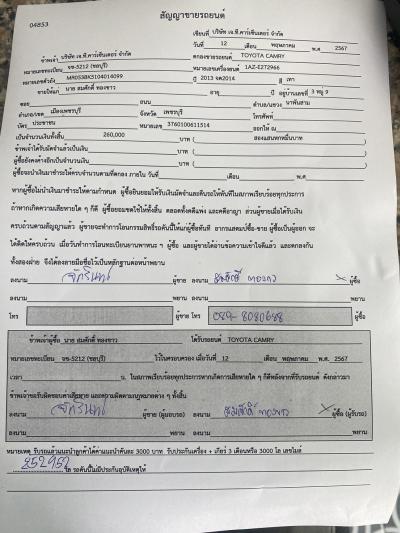 สัญญาขายรถยนต์
04853
เขียนที่ บริษัท เจ.ที.คาร์เซ็นเตอร์ จำกัด
วันที่ 12 เดือน พฤษภาคม พ.ศ. 2567
ข้าพเจ้า บริษัท เจ.ที.คาร์เซ็นเตอร์ จำกัด ตกลงขายรถยนต์ TOYOTA CAMRY
หมายเลขทะเบียน จข-5212 (ชลบุรี) หมายเลขเครื่องยนต์ 1AZ-E272966
หมายเลขตัวถัง MR053BK5104014099 ปี 2013 จด2014 สี เทา
ขายให้แก่ นาย สมศักดิ์ ทองขาว อายุ ปี อยู่บ้านเลขที่ 3 หมู่ 9
ซอย ถนน ตำบล/แขวง นาพันสาม
อำเภอ/เขต เมืองเพชรบุรี จังหวัด เพชรบุรี โทรศัพท์
บัตร ประชาชน หมายเลข 3760100611514 ออกให้ ณ
เป็นจำนวนเงินทั้งสิ้น 260,000 บาท ( สองแสนหกหมื่นบาท
ข้าพเจ้าได้รับมัดจำแล้วเป็นเงิน บาท (
ผู้ซื้อยังคงค้างอีกเป็นจำนวนเงิน บาท (
ผู้ซื้อจะนำเงินมาชำระให้ครบจำนวนตามที่ตกลง ภายใน วันที่ เดือน พ.ศ.
หากผู้ซื้อไม่นำเงินมาชำระให้ตามกำหนด ผู้ซื้อยินยอมให้ริบเงินมัดจำและคืนรถให้ทันทีในสภาพเรียบร้อยทุกประการ
ถ้าหากเกิดความเสียหายใด ๆ ก็ดี ผู้ซื้อยอมชดใช้ให้ทั้งสิ้น ตลอดทั้งคดีแพ่ง และคดีอาญา ส่วนผู้ขายเมื่อได้รับเงิน
ครบถ้วนตามสัญญาแล้ว ผู้ขายจะทำการโอนกรรมสิทธิ์รถคันนี้ให้แก่ผู้ซื้อทันที อากรแสตมป์ซื้อ-ขาย ผู้ซื้อเป็นผู้ออก จะ
ได้คิดให้ครบถ้วน เมื่อวันทำการโอนทะเบียนยานพาหนะ ฯ ผู้ซื้อ และผู้ขายได้อ่านข้อความเข้าใจดีแล้ว และตกลงกัน
ทั้งสองฝ่าย จึงได้ลงลายมือชื่อไว้เป็นหลักฐานต่อหน้าพยาน
ลงนาม ผู้ขาย ลงนาม สมศักดิ์ ทองขาว X ผู้ซื้อ
ลงนาม พยาน ลงนาม พยาน
โทร ผู้ขาย โทร 089-8080688 ผู้ซื้อ
ข้าพเจ้าผู้ซื้อ นาย สมศักดิ์ ทองขาว ได้รับรถยนต์ TOYOTA CAMRY
หมายเลขทะเบียน จข-5212 (ชลบุรี) ไว้ในครอบครอง เมื่อวันที่ 12 เดือน พฤษภาคม พ.ศ. 2567
เวลา น. ในสภาพเรียบร้อยทุกประการหากเกิดการเสียหายใด ๆ ก็ดีหลังจากที่รับรถยนต์ ดังกล่าวมา
ข้าพเจ้าขอรับผิดชอบค่าเสียหาย และความผิดตามกฎหมายต่าง ๆ ทั้งสิ้น
ลงนาม ผู้ขาย (ผู้มอบรถ) ลงนาม สมศักดิ์ ทองขาว X ผู้ซื้อ (ผู้รับรถ)
ลงนาม พยาน ลงนาม พยาน
หมายเหตุ รับรถแล้วแนะนำลูกค้าได้ค่าแนะนำคันละ 3000 บาท รับประกันเครื่อง + เกียร์ 3 เดือนหรือ 3000 โล เลขไมล์
252952 โล รถคันนี้ไม่มีประกันอุบัติเหตุให้